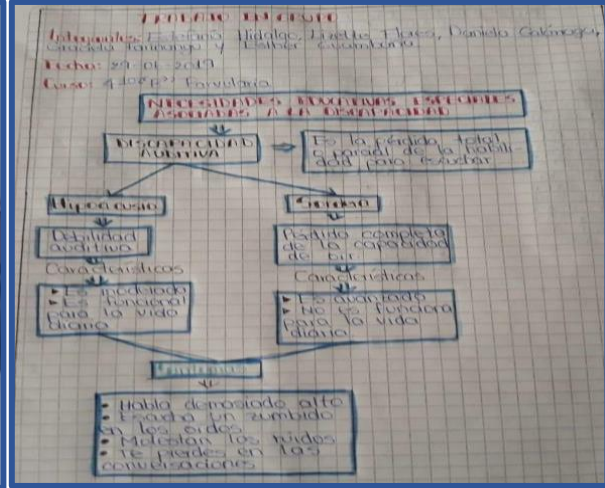 TRABAJO EN GRUPO
Integrantes: Estefanía Hidalgo, Lisette Flores, Daniela
Graciela y Esther
Fecha: 29-01-2019
Curso: Parvularia
NECESIDADES EDUCATIVAS ESPECIALES
ASOCIADAS A LA DISCAPACIDAD
DISCAPACIDAD
AUDITIVA
Es la pérdida total
o parcial de la habili-
dad para escuchar
Hipoacusia
Sordera
Debilidad
auditiva
Pérdida completa
de la capacidad
de oir
Características
Características
Es moderado
Es funcional
para la vida
diaria
Es avanzado
No es funcional
para la vida
diaria
Habla demasiado alto
Escucha un zumbido
en los oidos
Molestan los ruidos
Te pierdes en las
conversaciones